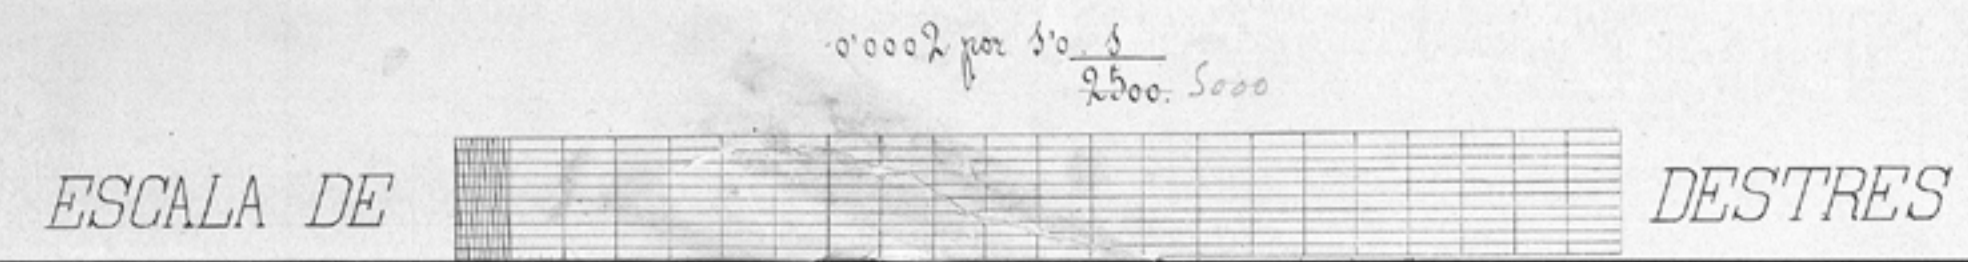 0'0002 por 1'0. 1
2500. 5000
ESCALA DE DESTRES